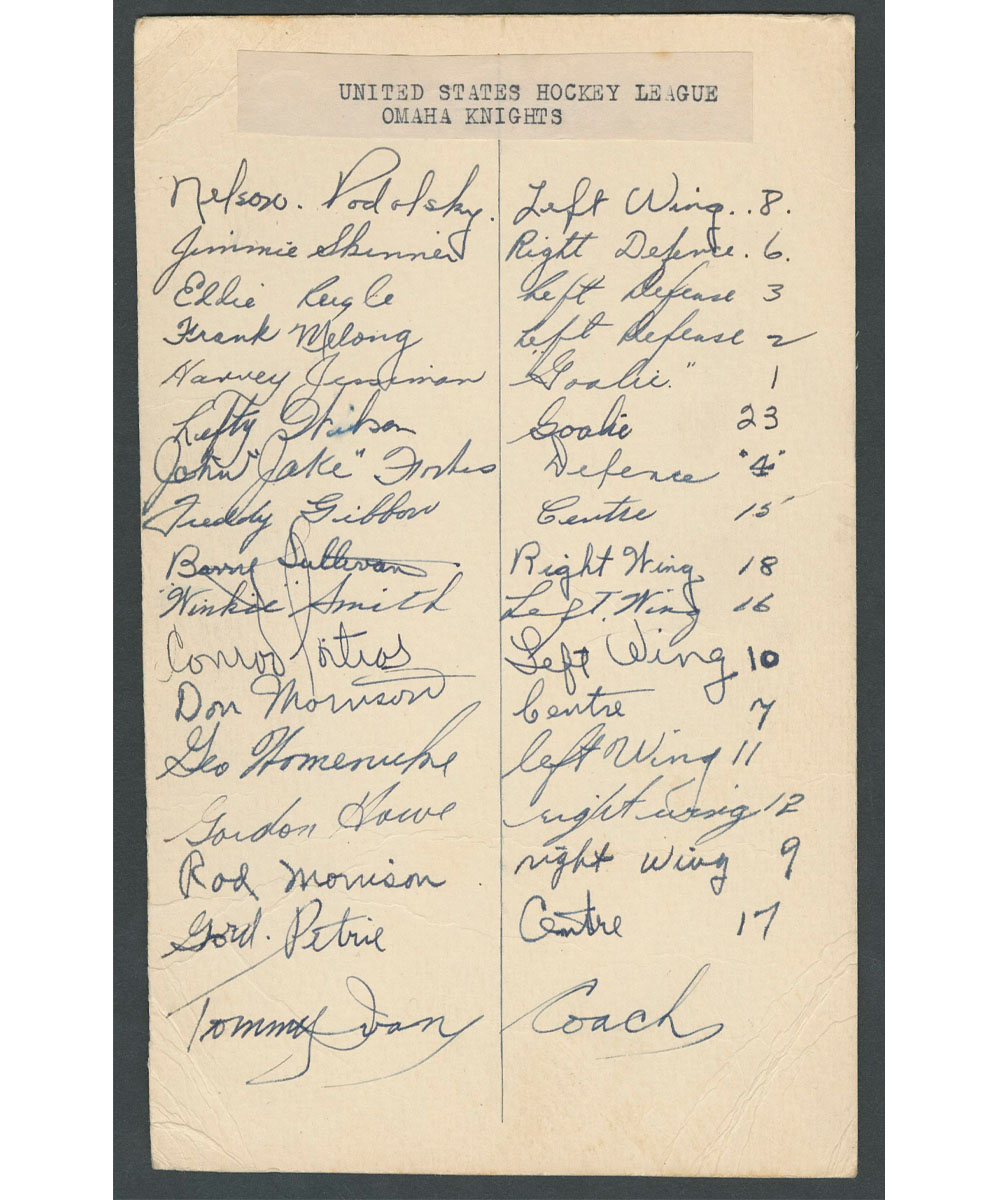 UNITED STATES HOCKEY LEAGUE
OMAHA KNIGHTS
Nelson. Podolsky. Left Wing.. 8.
Jimmie Skinner Right Defence. 6.
Eddie Reigle Left Defense 3
Frank Melong Left Defense 2
Harvey Jessiman "Goalie." 1
Lefty Wilson Goalie 23
John "Jake" Forbes Defence "4"
Freddy Gibbon Centre 15
Barry Sullivan. Right Wing 18
"Winkie" Smith Left. Wing 16
Conroy Left Wing 10
Don Morrison Centre 7
Geo Homenuke left Wing 11
Gordon Howe right wing 12
Rod Morrison right wing 9
Gord. Petrie Centre 17
Tommy Ivan Coach